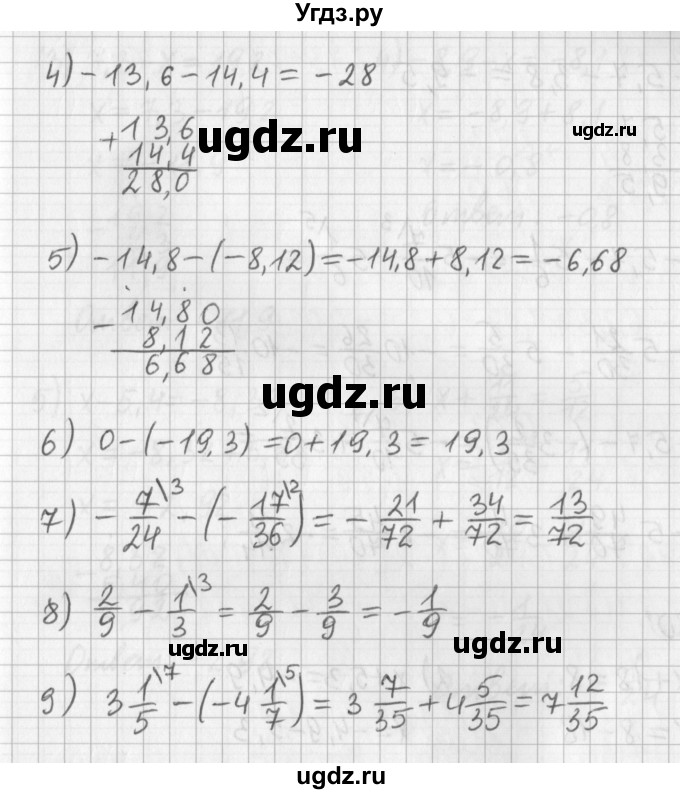 Угдз.ру
4) -13,6-14,4 = -28
+13,6
14,4
28,0
ugdz.ru
ugdz.ru
5) -14,8-(-8,12)=-14,8+8,12=-6,68
-14,80
8,12
6,68
ugdz.ru
ugdz.ru
6) 0-(-19,3)=0+19,3=19,3
7) -7\3/24 - (-17\2/36) = -21/72 + 34/72 = 13/72
8) 2/9 - 1\3/3 = 2/9 - 3/9 = -1/9
ugdz.ru
ugdz.ru
9) 3 1\7/5 - (-4 1\5/7) = 3 7/35 + 4 5/35 = 7 12/35
ugdz.ru